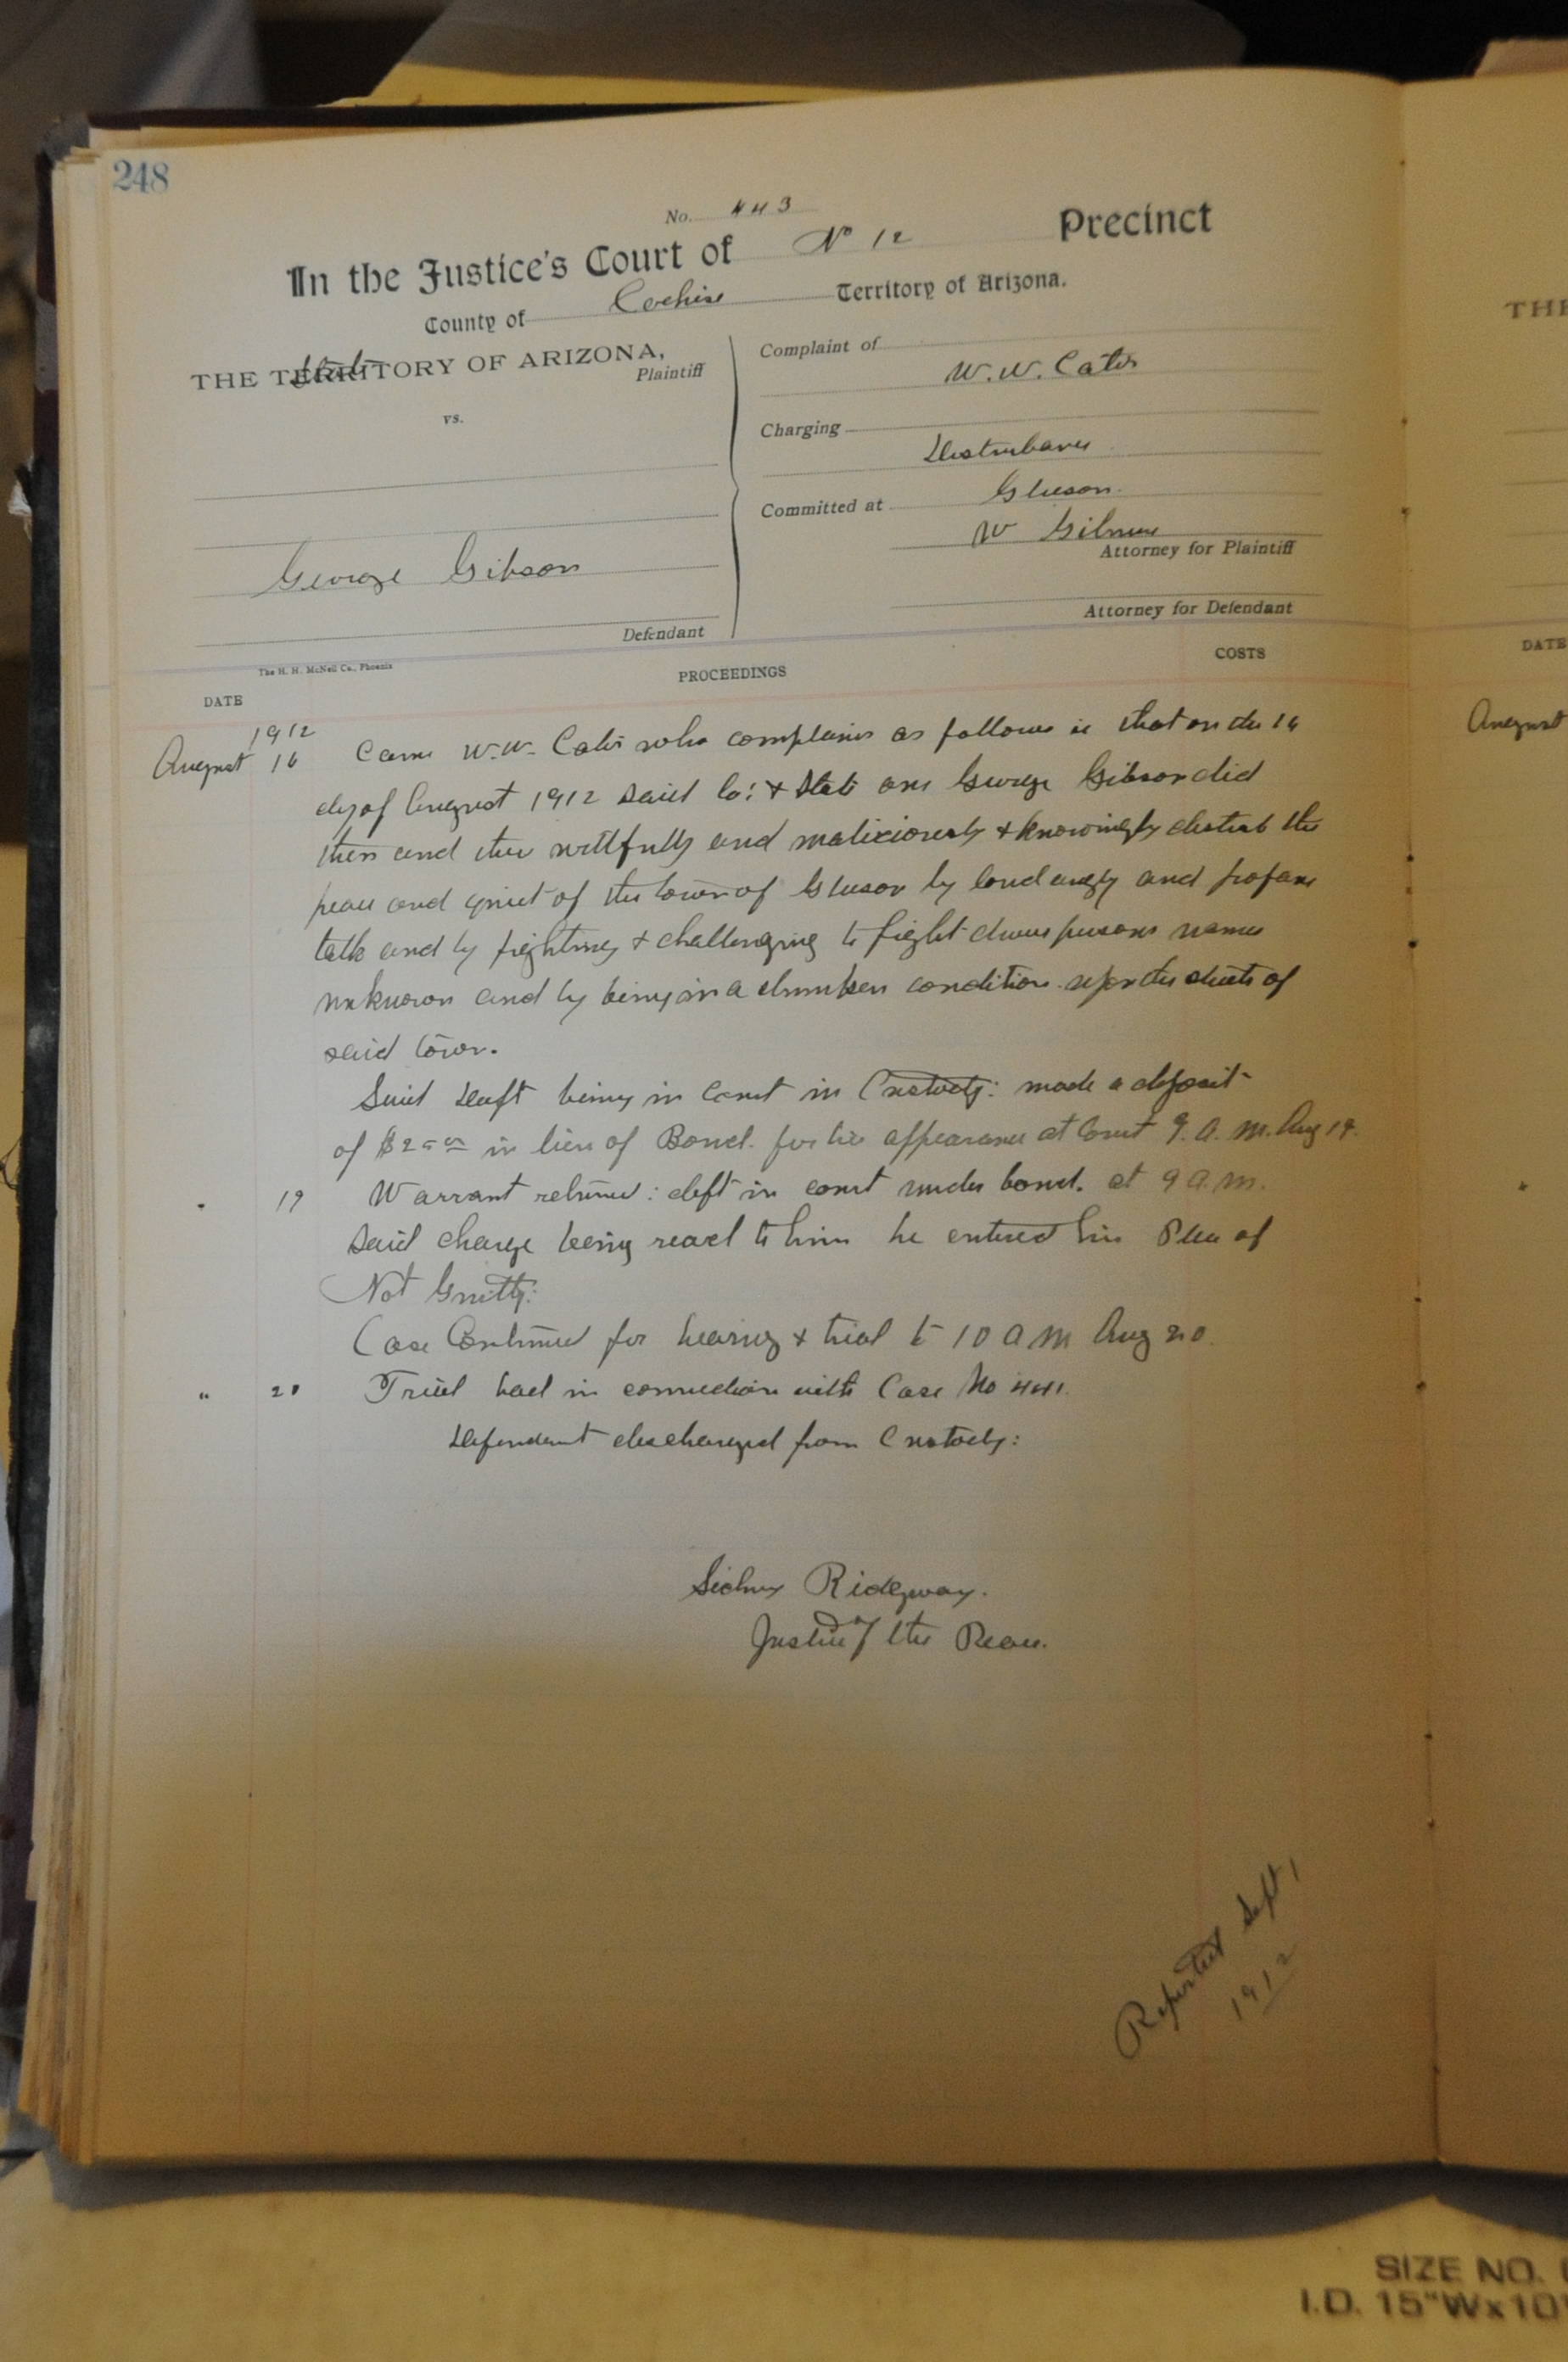 248
No. 443
In the Justice's Court of No 12 Precinct
County of Cochise Territory of Arizona.
THE TERRITORY OF ARIZONA,
State
Plaintiff
vs.
George Gibson
Defendant
Complaint of
W. W. Cates
Charging
Disturbance
Committed at Gleeson.
W Gilmore
Attorney for Plaintiff
Attorney for Defendant
The H. H. McNeil Co., Phoenix
DATE
PROCEEDINGS
COSTS
1912
August 16 Came W. W. Cates who complains as follows is that on the 16
day of August 1912 said Co: & State one George Gibson did
then and there willfully and maliciously & knowingly disturb the
peace and quiet of the town of Gleeson by loud angry and profane
talk and by fighting & challenging to fight divers persons names
unknown and by being in a drunken condition upon the streets of
said town.
Said Deft being in Court in Custody: made a deposit
of $25 00 in lieu of Bond. for his appearance at Court 9. A. M. Aug 19.
" 19 Warrant returned: deft in court under bond. at 9 a. m.
Said charge being read to him he entered his Plea of
Not Guilty:
Case Continued for hearing & trial to 10 A M Aug 20.
" 20 Trial had in connection with Case No 441.
Defendant discharged from Custody:
Sidney Ridgway.
Justice of the Peace.
Reported Sept 1
1912
THE
DATE
August
SIZE NO.
I.D. 15"Wx10"